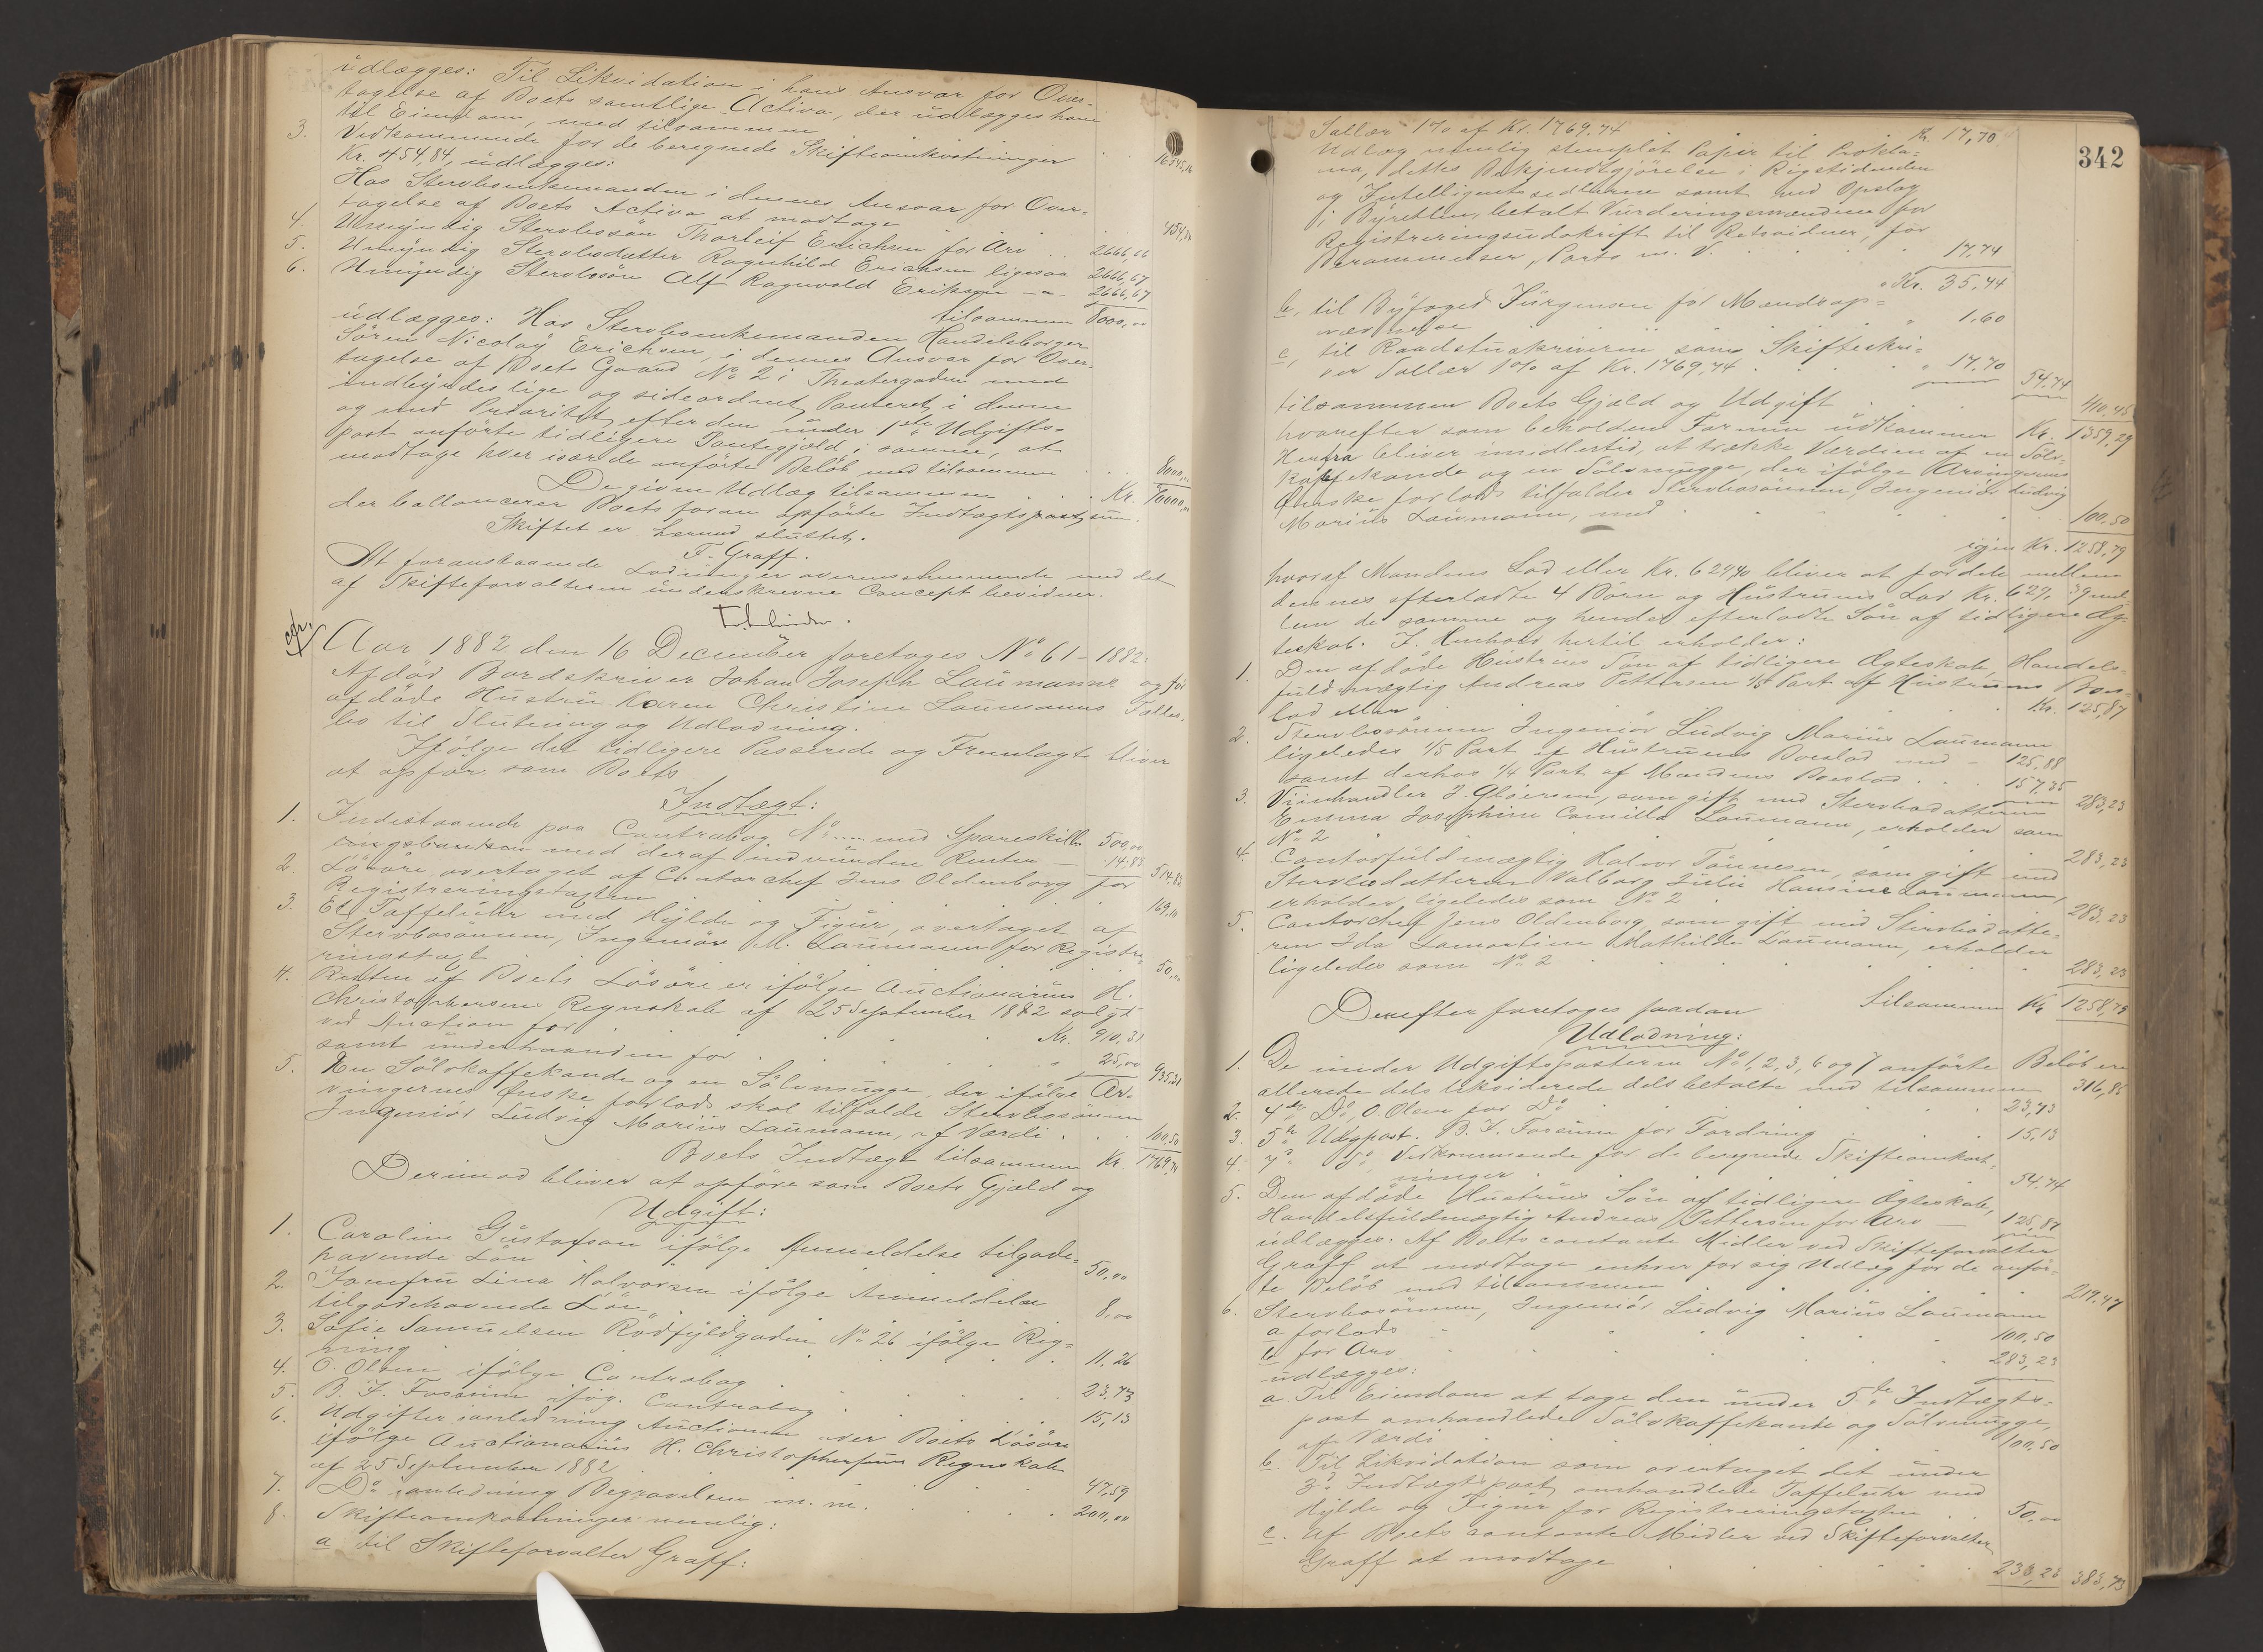 udlægges: Til Likvidation i hans Ansvar for Over-
tagelse af Boets samtlige Activa, der udlægges ham
til Eiendom, med tilsammen 16545,16
3. Vedkommende for de beregnede Skifteomkostninger
Kr. 454,84, udlægges:
Hos Stervboenkemanden i dennes Ansvar for Over-
tagelse af Boets Activa at modtage 454,84
4. Umyndig Stervbosön Thorleif Erichsen for Arv 2666,66
5. Umyndig Stervbodatter Ragnhild Erichsen ligesaa 2666,67
6. Umyndig Stervbosön Alf Ragnvald Eriksen -"- 2666,67
tilsammen 8000,00
udlægges: Hos Stervboenkemanden Handelsborger
Sören Nicolay Erichsen, i dennes Ansvar for Over-
tagelse af Boets Gaard No 2 i Theatergaden med
indbyrdes lige og sideordnet Panteret i denne
og med Prioritet efter den under 1ste Udgifts-
post anförte tidligere Pantegjæld i samme, at
modtage hver især de anförte Belöb med tilsammen 8000,00
De givne Udlæg tilsammen Kr.
der ballancerer Boets foran opförte Indtægtspost sum.
Skiftet er hermed sluttet.
F. Graff.
At foranstaaende Lodninger overensstemmende med det
af Skifteforvalteren underskrevne Concept bevidnes.
Aar 1882 den 16 December foretoges No 61-1882:
Afdöd Bordskriver Johan Joseph Laumanns og för
afdöde Hustru Karen Christine Laumanns Fælles-
bo til Slutning og Udlodning.
Ifölge det tidligere Passerede og Fremlagte bliver
at opföre som Boets
Indtægt:
1. Indestaaende paa Contrabog No .... med Spareskill- 500,00
ingsbanken med deraf indvunden Renter — 14.83 514,83
2. Lösöre overtaget af Contorchef Jens Oldenborg for
Registreringstaxten 169,10
3. Et Taffeluhr med Hylde og Figur, overtaget af
Stervbosönnen, Ingeniör M. Laumann for Registre-
ringstaxt 50,00
4. Resten af Boets Lösöre er ifölge Auctionarius H.
Christophersens Regnskab af 25 September 1882 solgt
ved Auction for Kr. 910.31
samt underhaanden for " 25,00 935.31
5. En Sölvkaffekande og en Sölvmugge, der ifölge Ar-
vingernes Ønske forlods skal tilfalde Stervbosönnen
Ingeniör Ludvig Marius Laumann, af Værdi 100,50
Boets Indtægt tilsammen Kr. 1769,74
Derimod bliver at opföre som Boets Gjæld og
Udgift:
1. Caroline Gustafson ifölge Anmeldelse tilgode-
havende Lön 50,00
2. Jomfru Lina Halvorsen ifölge Anmeldelse
tilgodehavende Lön 8,00
3. Sofie Samuelsen Rödfyldgaden No 26 ifölge Reg-
ning 11.26
4. O. Olsen ifölge Contrabog 23.73
5. B. F. Fossum ifög. Contrabog 15,13
6. Udgifter i anledning Auctionen over Boets Lösöre
ifölge Auctionarius H. Christophersens Regnskab
af 25 September 1882 47,59
7. Do i anledning Begravelsen m. m. 200,00
8. Skifteomkostninger nemlig:
a til Skifteforvalter Graff:
342
Sallær 1% af Kr. 1769.74 Kr. 17,70
Udlæg nemlig stemplet Papir til Prokla-
ma, dettes Bekjendtgjörelse i Rigstidenden
og Intelligentssedlerne samt ved Opslag
i Byretten, betalt Vurderingsmændene for
Registreringsudskrift til Retsvidner, for
Berammelser, Porto m. V. 17,74
Kr. 35,44
b, til Byfoged Jürgensen for Mandrop-
nævnelse " 1.60
c, til Raadstueskriveren som Skifteskri-
ver Sallær 1% af Kr. 1769,74 " 17,70 54,74
tilsammen Boets Gjæld og Udgift 410,45
hvorefter som beholden Formue udkommer Kr. 1359,29
Herfra bliver imidlertid at trække Værdien af en Sölv-
kaffekande og en Sölvmugge, der ifölge Arvingernes
Ønske forlods tilfalder Stervbosönnen, Ingeniör Ludvig
Marius Laumann, med 100,50
igjen Kr. 1258,79
hvoraf Mandens Lod eller Kr. 629,40 bliver at fordele mellem
dennes efterladte 4 Börn og Hustruens Lod Kr. 629,39 mel-
lem de samme og hendes efterladte Sön af tidligere Æg-
teskab. I Henhold hertil erholder:
1. Den afdöde Hustrues Sön af tidligere Ægteskab, Handels-
fuldmægtig Andreas Pettersen 1/5 Part af Hustruens Boes-
lod eller Kr. 125,87
2. Stervbosönnen Ingeniör Ludvig Marius Laumann
ligeledes 1/5 Part af Hustruens Boeslod med - 125,88
samt derhos 1/4 Part af Mandens Boeslod 157,35 283,23
3. Viinhandler J. Glöersen, som gift med Stervbodatteren
Emma Josephine Camilla Laumann, erholder som
No 2 283,23
4. Contorfuldmægtig Halvor Tönnesen, som gift med
Stervbodatteren Valborg Julie Hansine Laumann,
erholder ligeledes som No 2 283.23
5. Contorchef Jens Oldenborg som gift med Stervbodatte-
ren Ida Lamartine Mathilde Laumann, erholder
ligeledes som No 2 283,23
tilsammen Kr. 1258,79
Derefter foretages saadan
Udlodning:
1. De under Udgiftsposterne No 1, 2, 3, 6 og 7 anförte Belöb ere
allerede dels likviderede dels betalte med tilsammen 316,85
2. 4de Do, O. Olsen for Do 23,73
3. 5te Udgpost. B. F. Forsum for Fordring 15,13
4. Vedkommende for de beregnede Skifteomkost-
ninger 54.74
5. Den afdöde Hustrues Sön af tidligere Ægteskab,
Handelsfuldmægtig Andreas Pettersen for Arv — 125,87
udlægges: Af Boets contante Midler ved Skifteforvalter
Graff at modtage enhver for sig Udlæg for de anför-
te Belöb med tilsammen 219,47
6. Stervbosönnen, Ingeniör Ludvig Marius Laumann
a forlods 100,50
b for Arv 283,23
udlægges:
a Til Eiendom at tage den under 5te Indtægts-
post omhandlede Sölvkaffekande og Sölvmugge,
af Værdi 100,50
b. Til Likvidation som overtaget det under
3die Indtægtspost omhandlede Taffeluhr med
Hylde og Figur for Registreringstaxten 50,00
c. Af Boets contante Midler ved Skifteforvalter
Graff at modtage 233,23 383,73